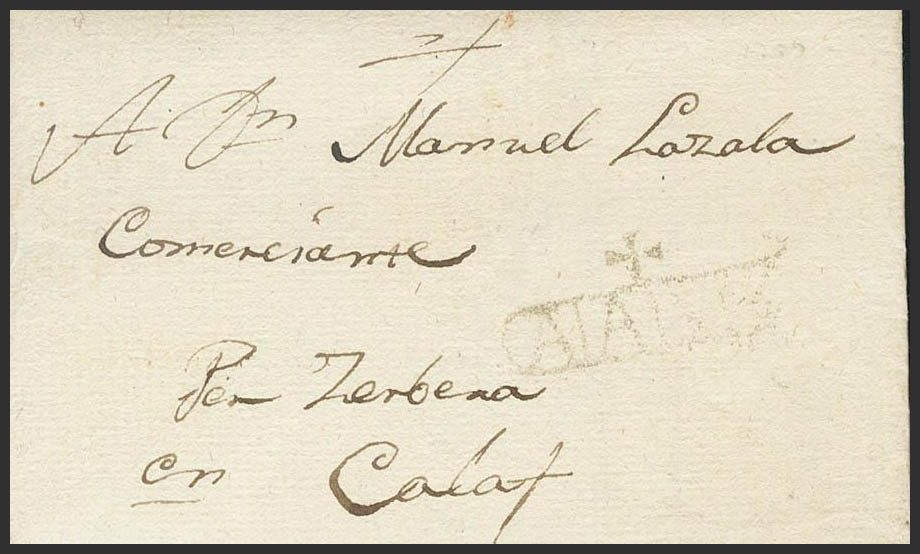 A Dn Manuel Lozala
Comerciante
Per Zerbera
en Calaf